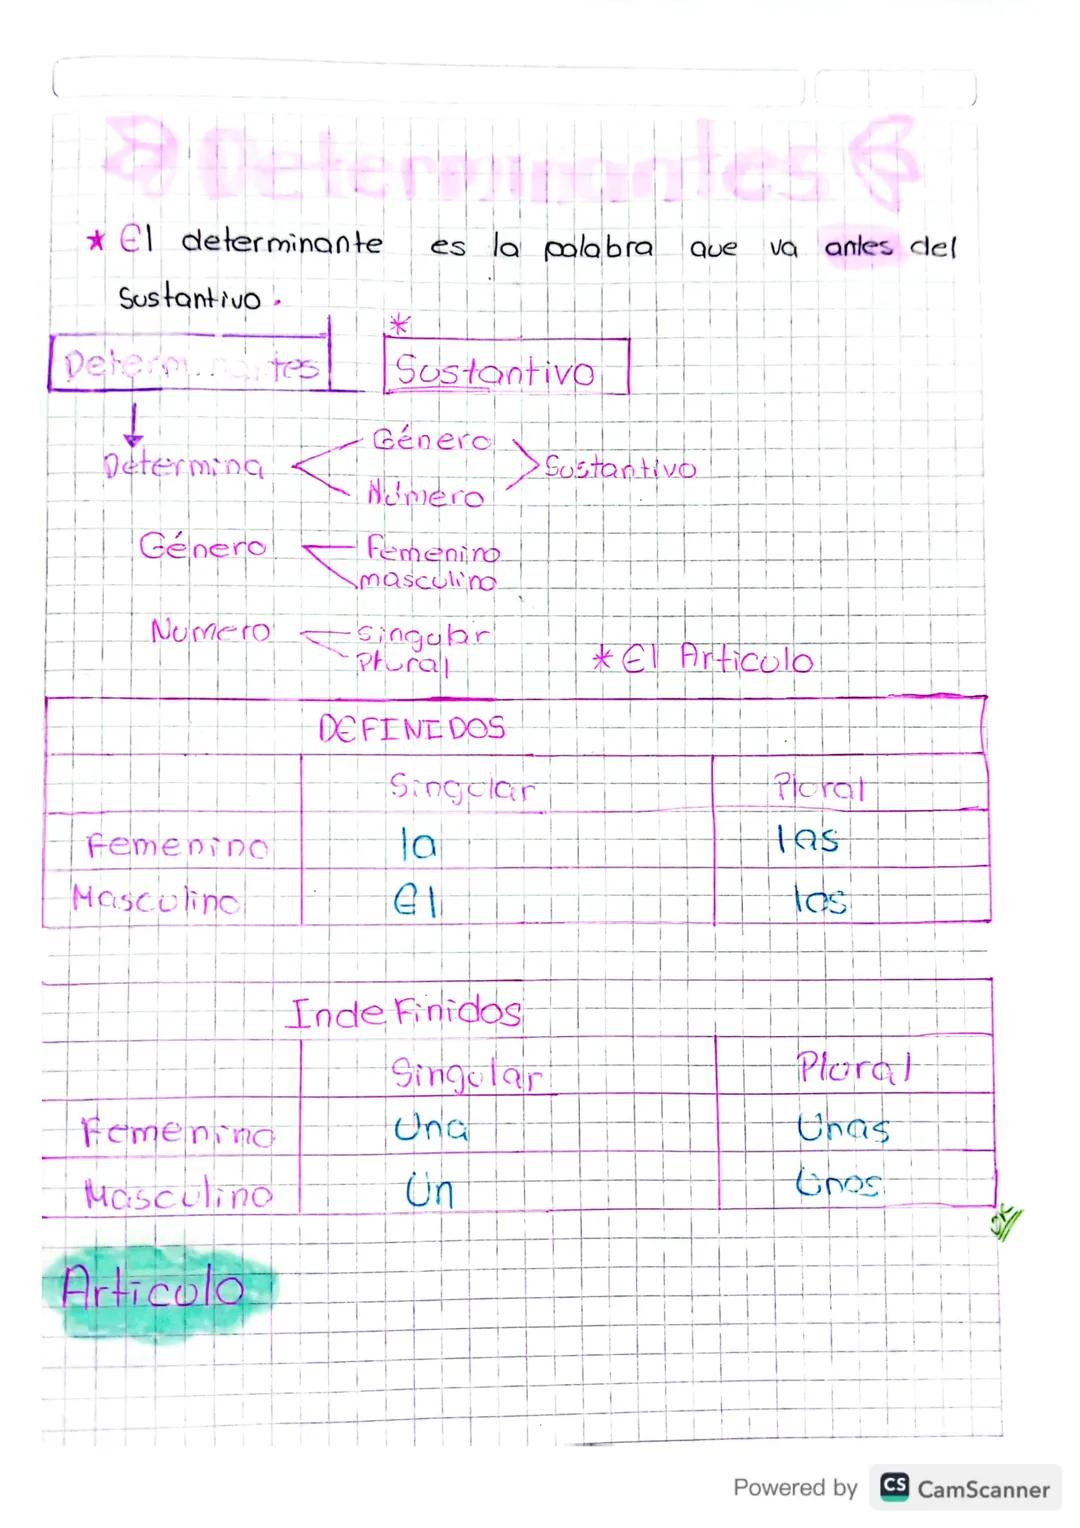 Determinantes
* El determinante es la palabra que va antes del
sustantivo.
Determinantes
* Sustantivo
Determina
Género
Número
Sustantivo
Género
Femenino
masculino
Numero
singular
Plural
* El Articulo
DEFINIDOS
Singular Plural
Femenino la las
Masculino El los
Indefinidos
Singular Plural
Femenino Una Unas
Masculino Un Unos
Articulo
Powered by CS CamScanner